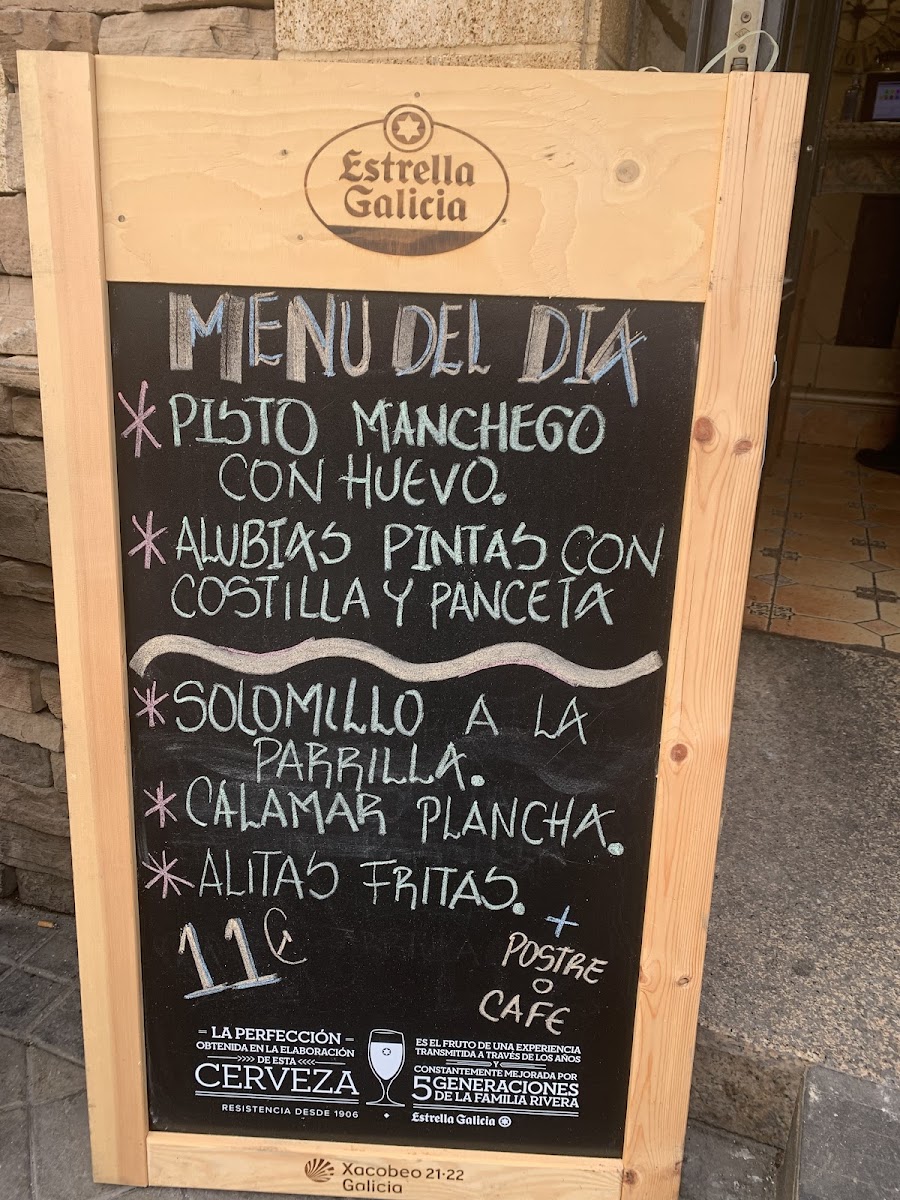 Estrella
Galicia
MENU DEL DIA
* PISTO MANCHEGO
CON HUEVO.
* ALUBIAS PINTAS CON
COSTILLA Y PANCETA
* SOLOMILLO A LA
PARRILLA.
* CALAMAR PLANCHA.
* ALITAS FRITAS.
11€
+
POSTRE
O
CAFE
– LA PERFECCIÓN –
OBTENIDA EN LA ELABORACIÓN
»»» DE ESTA ««««
CERVEZA
RESISTENCIA DESDE 1906
ES EL FRUTO DE UNA EXPERIENCIA
TRANSMITIDA A TRAVÉS DE LOS AÑOS
Y
CONSTANTEMENTE MEJORADA POR
5 GENERACIONES
DE LA FAMILIA RIVERA
Estrella Galicia
Xacobeo 21·22
Galicia